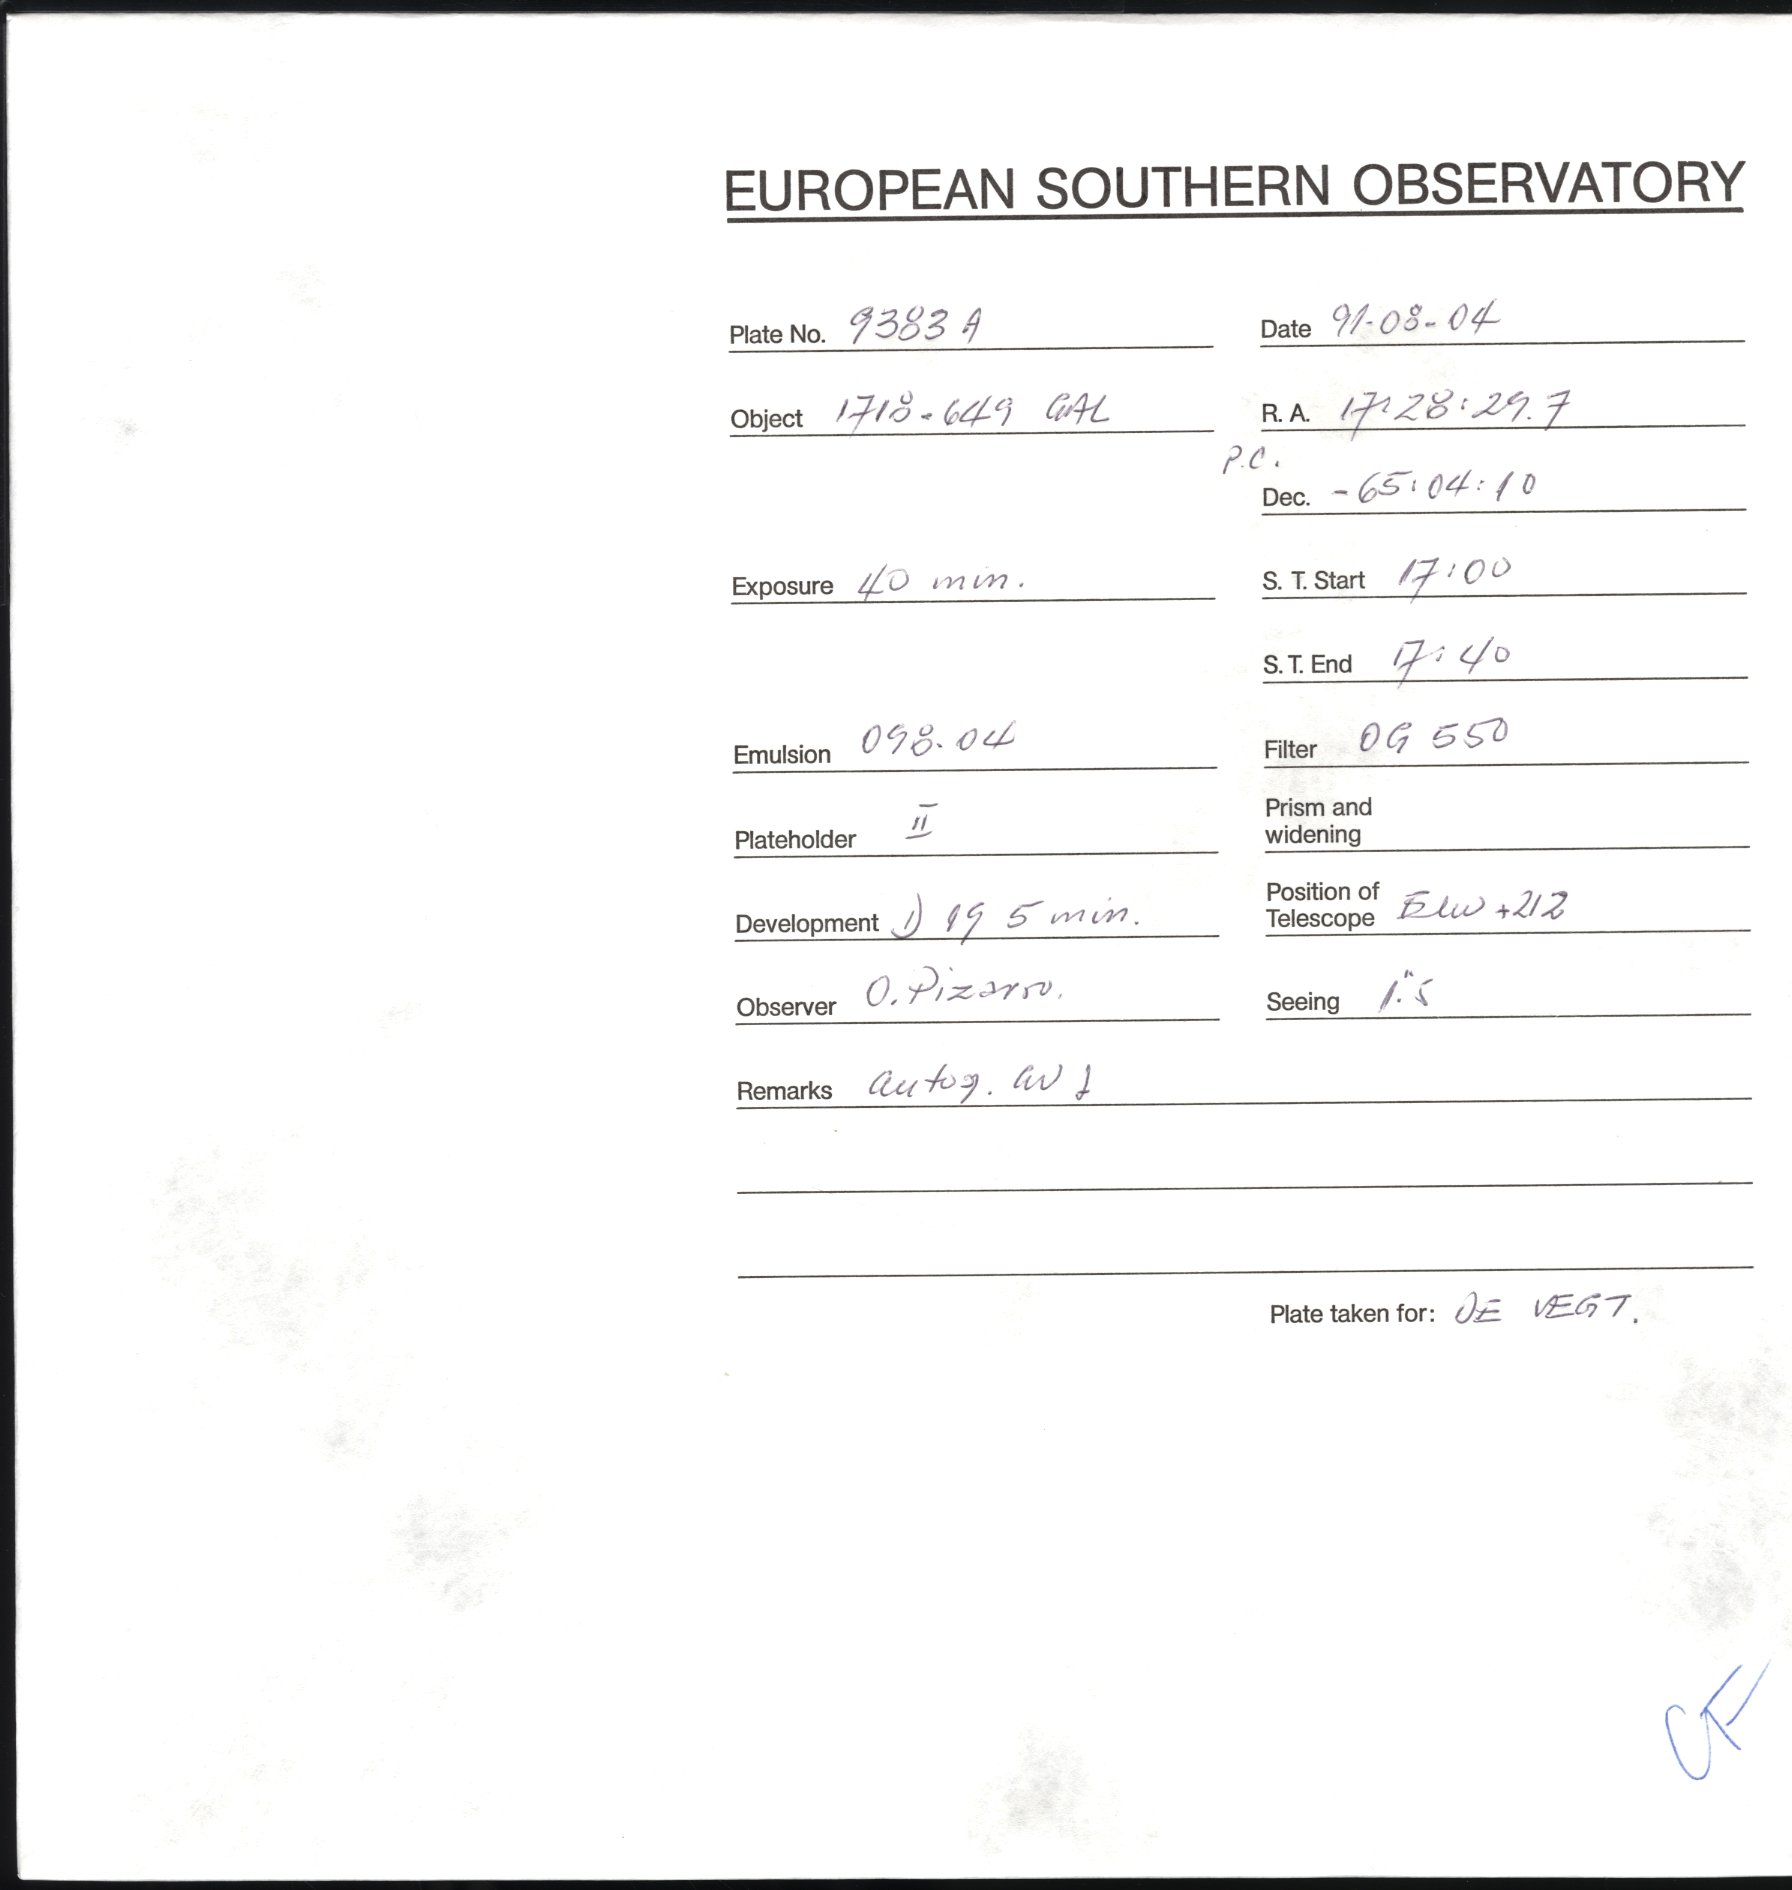 EUROPEAN SOUTHERN OBSERVATORY
Plate No. 9383 A Date 91-08-04
Object 1718-649 GAL R. A. 17:28:29.7
P.C.
Dec. -65:04:10
Exposure 40 min. S. T. Start 17:00
S. T. End 17:40
Emulsion 098-04 Filter OG 550
Plateholder II Prism and
widening
Development D 19 5 min. Position of
Telescope +212
Observer O. Pizarro. Seeing 1."5
Remarks autog.
Plate taken for: DE VEGT.